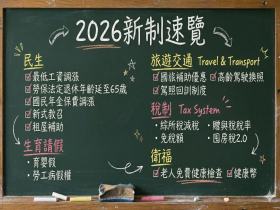 2026新制速覽
民生
☑最低工資調漲
☑勞保法定退休年齡延至65歲
☑國民年金保費調漲
☑新式教召
☑租屋補助
生育請假
・育嬰假
・勞工病假權
旅遊交通 Travel & Transport
☑國旅補助優惠 ☑高齡駕駛換照
☑駕照回訓制度
稅制 Tax System
・綜所稅減稅 ・贈與稅稅率
・免稅額 ・囤房稅2.0
衛福
☑老人免費健康檢查 ☑健康幣